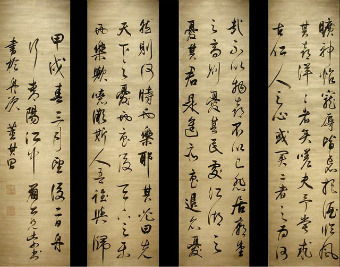 曠神怡寵辱皆忘把酒臨風
其喜洋洋者矣嗟夫予嘗求
古仁人之心或異二者之為何
哉不以物喜不以己悲居廟堂
之高則憂其民處江湖之
憂其君是進亦憂退亦憂
然則何時而樂耶其必曰先
天下之憂而憂後天下之樂
而樂歟噫微斯人吾誰與歸
甲戌春三月望後二日舟
行青陽江中
書於舟次董其昌